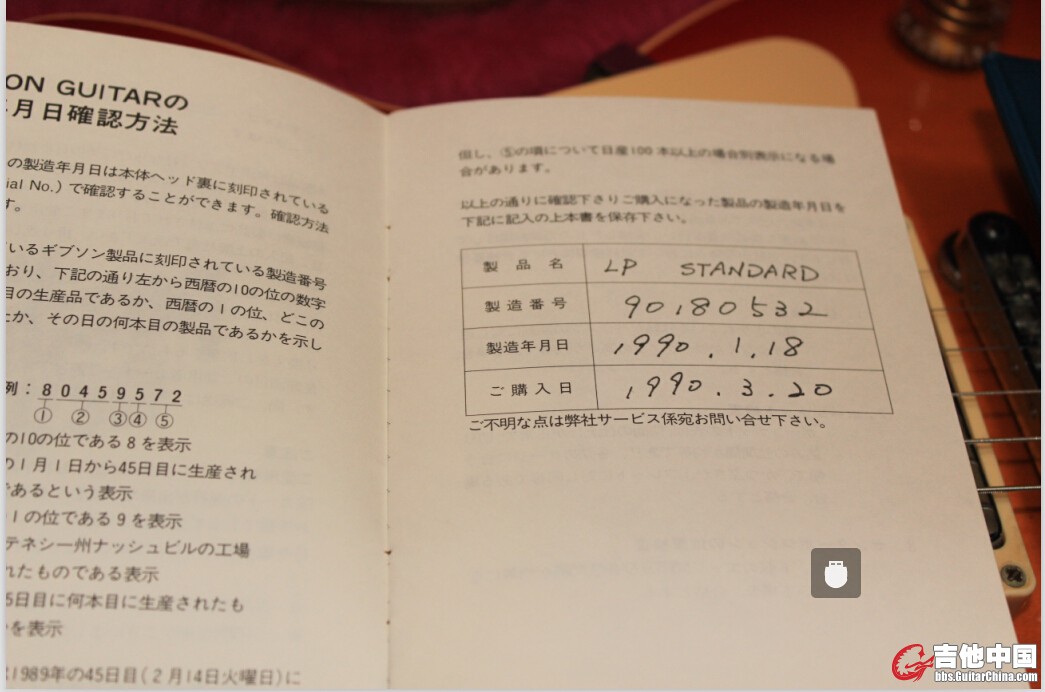 ON GUITARの
月日確認方法
の製造年月日は本体ヘッド裏に刻印されている
ial No.）で確認することができます。確認方法
す。
いるギブソン製品に刻印されている製造番号
おり、下記の通り左から西暦の10の位の数字
目の生産品であるか、西暦の1の位、どこの
たか、その日の何本目の製品であるかを示し
例：80459572
① ② ③ ④ ⑤
の10の位である8を表示
の1月1日から45日目に生産され
であるという表示
1の位である9を表示
テネシー州ナッシュビルの工場
れたものである表示
5日目に何本目に生産されたも
を表示
1989年の45日目（2月14日火曜日）に
但し、⑤の項について日産100本以上の場合別表示になる場
合があります。
以上の通りに確認下さりご購入になった製品の製造年月日を
下記に記入の上本書を保存下さい。
製品名 LP STANDARD
製造番号 90180532
製造年月日 1990.1.18
ご購入日 1990.3.20
ご不明な点は弊社サービス係宛お問い合せ下さい。
吉他中国
bbs.GuitarChina.com